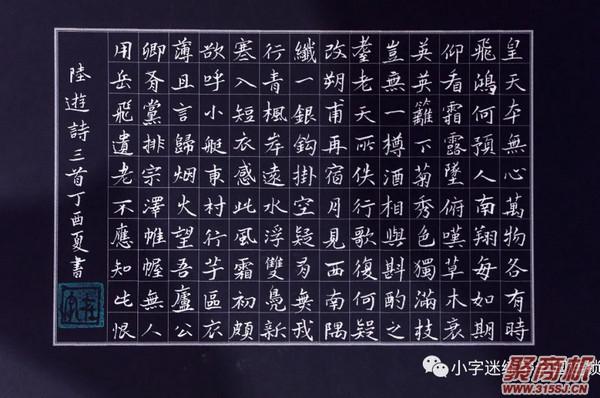 皇天夲無心萬物各有時
飛鴻何預人南翔每如期
仰看霜露墜俯嘆草木衰
英英籬下菊秀色獨滿技
豈無一樽酒相與斟酌之
耋老天所佚行歌復何疑
改朔甫再宿月見西南隅
纖一銀鈎掛空疑有無我
行青楓岸遠水浮雙鳧新
寒入短衣感此風霜初頗
欲呼小艇東村行芋區衣
薄且言歸烟火望吾廬公
卿脅黨排宗澤帷幄無人
用岳飛遺老不應知此恨
陸遊詩三首丁酉夏書
小字迷
聚商机
WWW.315SJ.CN